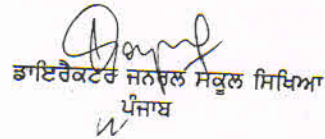 ਡਾਇਰੈਕਟਰ ਜਨਰਲ ਸਕੂਲ ਸਿਖਿਆ
ਪੰਜਾਬ